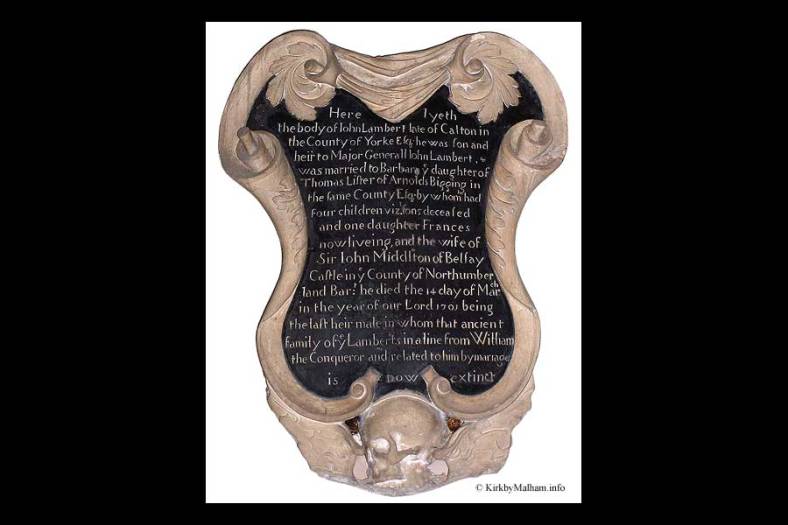 Here lyeth
the body of Iohn Lambert late of Calton in
the County of Yorke Esq: he was son and
heir to Major Generall Iohn Lambert, &
was married to Barbara yͤ daughter of
Thomas Lister of Arnolds Bigging in
the same County Esq: by whom had
four children viz.
and one daughter Frances
now liveing, and the wife of
Sir Iohn Middlton of Belsay
Castle in yͤ County of Northumber
land Barᵗ: he died the 14 day of Marᶜʰ
in the year of our Lord 1701 being
the last heir male in whom that ancient
family of yͤ Lamberts in a line from William
the Conqueror and related to him by mariage
is now extinct
© KirkbyMalham.info